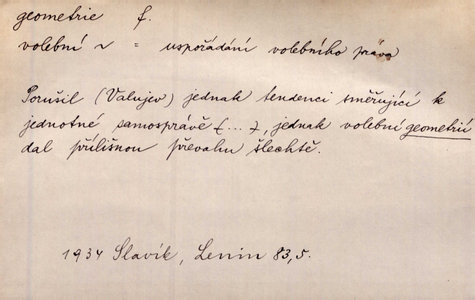 geometrie f.
volební ~ = uspořádání volebního práva
Porušil (Valujev) jednak tendenci směřující k
jednotné samosprávě (...), jednak volební geometrií
dal přílišnou převahu šlechtě.
1934 Slavík, Lenin 83,5.